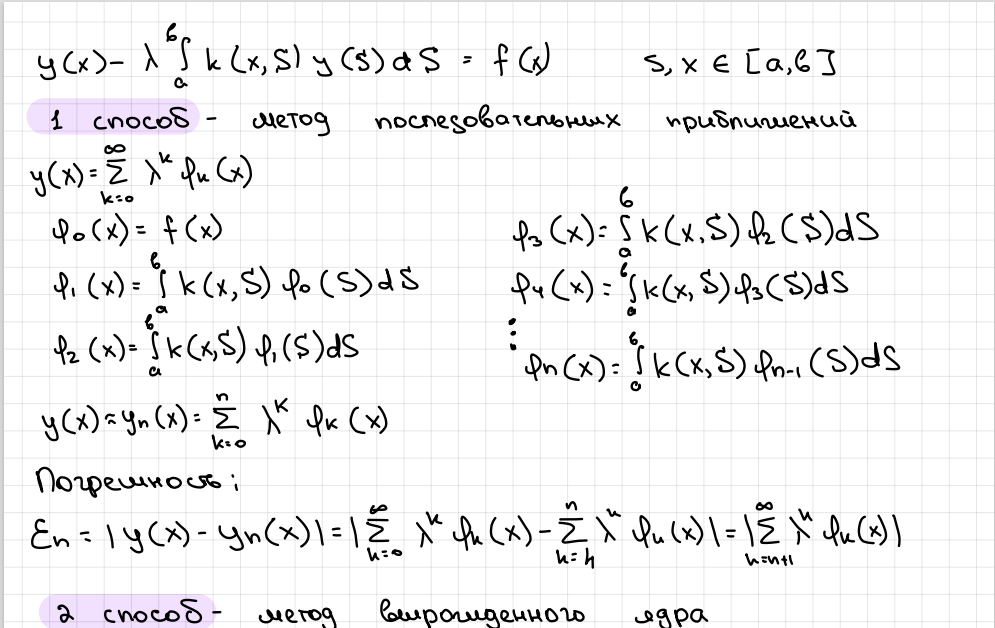 y(x) - λ ∫ₐᵇ k(x,S) y(S) dS = f(x)    S, x ∈ [a,b]
1 способ - метод последовательных приближений
y(x) = ∑_{k=0}^{∞} λᵏ φₖ(x)
φ₀(x) = f(x)
φ₁(x) = ∫ₐᵇ k(x,S) φ₀(S) dS
φ₂(x) = ∫ₐᵇ k(x,S) φ₁(S) dS
φ₃(x) = ∫ₐᵇ k(x,S) φ₂(S) dS
φ₄(x) = ∫ₐᵇ k(x,S) φ₃(S) dS
⋮
φₙ(x) = ∫ₐᵇ k(x,S) φₙ₋₁(S) dS
y(x) ≈ yₙ(x) = ∑_{k=0}^{n} λᵏ φₖ(x)
Погрешность:
Ɛₙ = |y(x) - yₙ(x)| = |∑_{k=0}^{∞} λᵏ φₖ(x) - ∑_{k=n}^{n} λᵏ φₖ(x)| = |∑_{k=n+1}^{∞} λᵏ φₖ(x)|
2 способ - метод вырожденного ядра